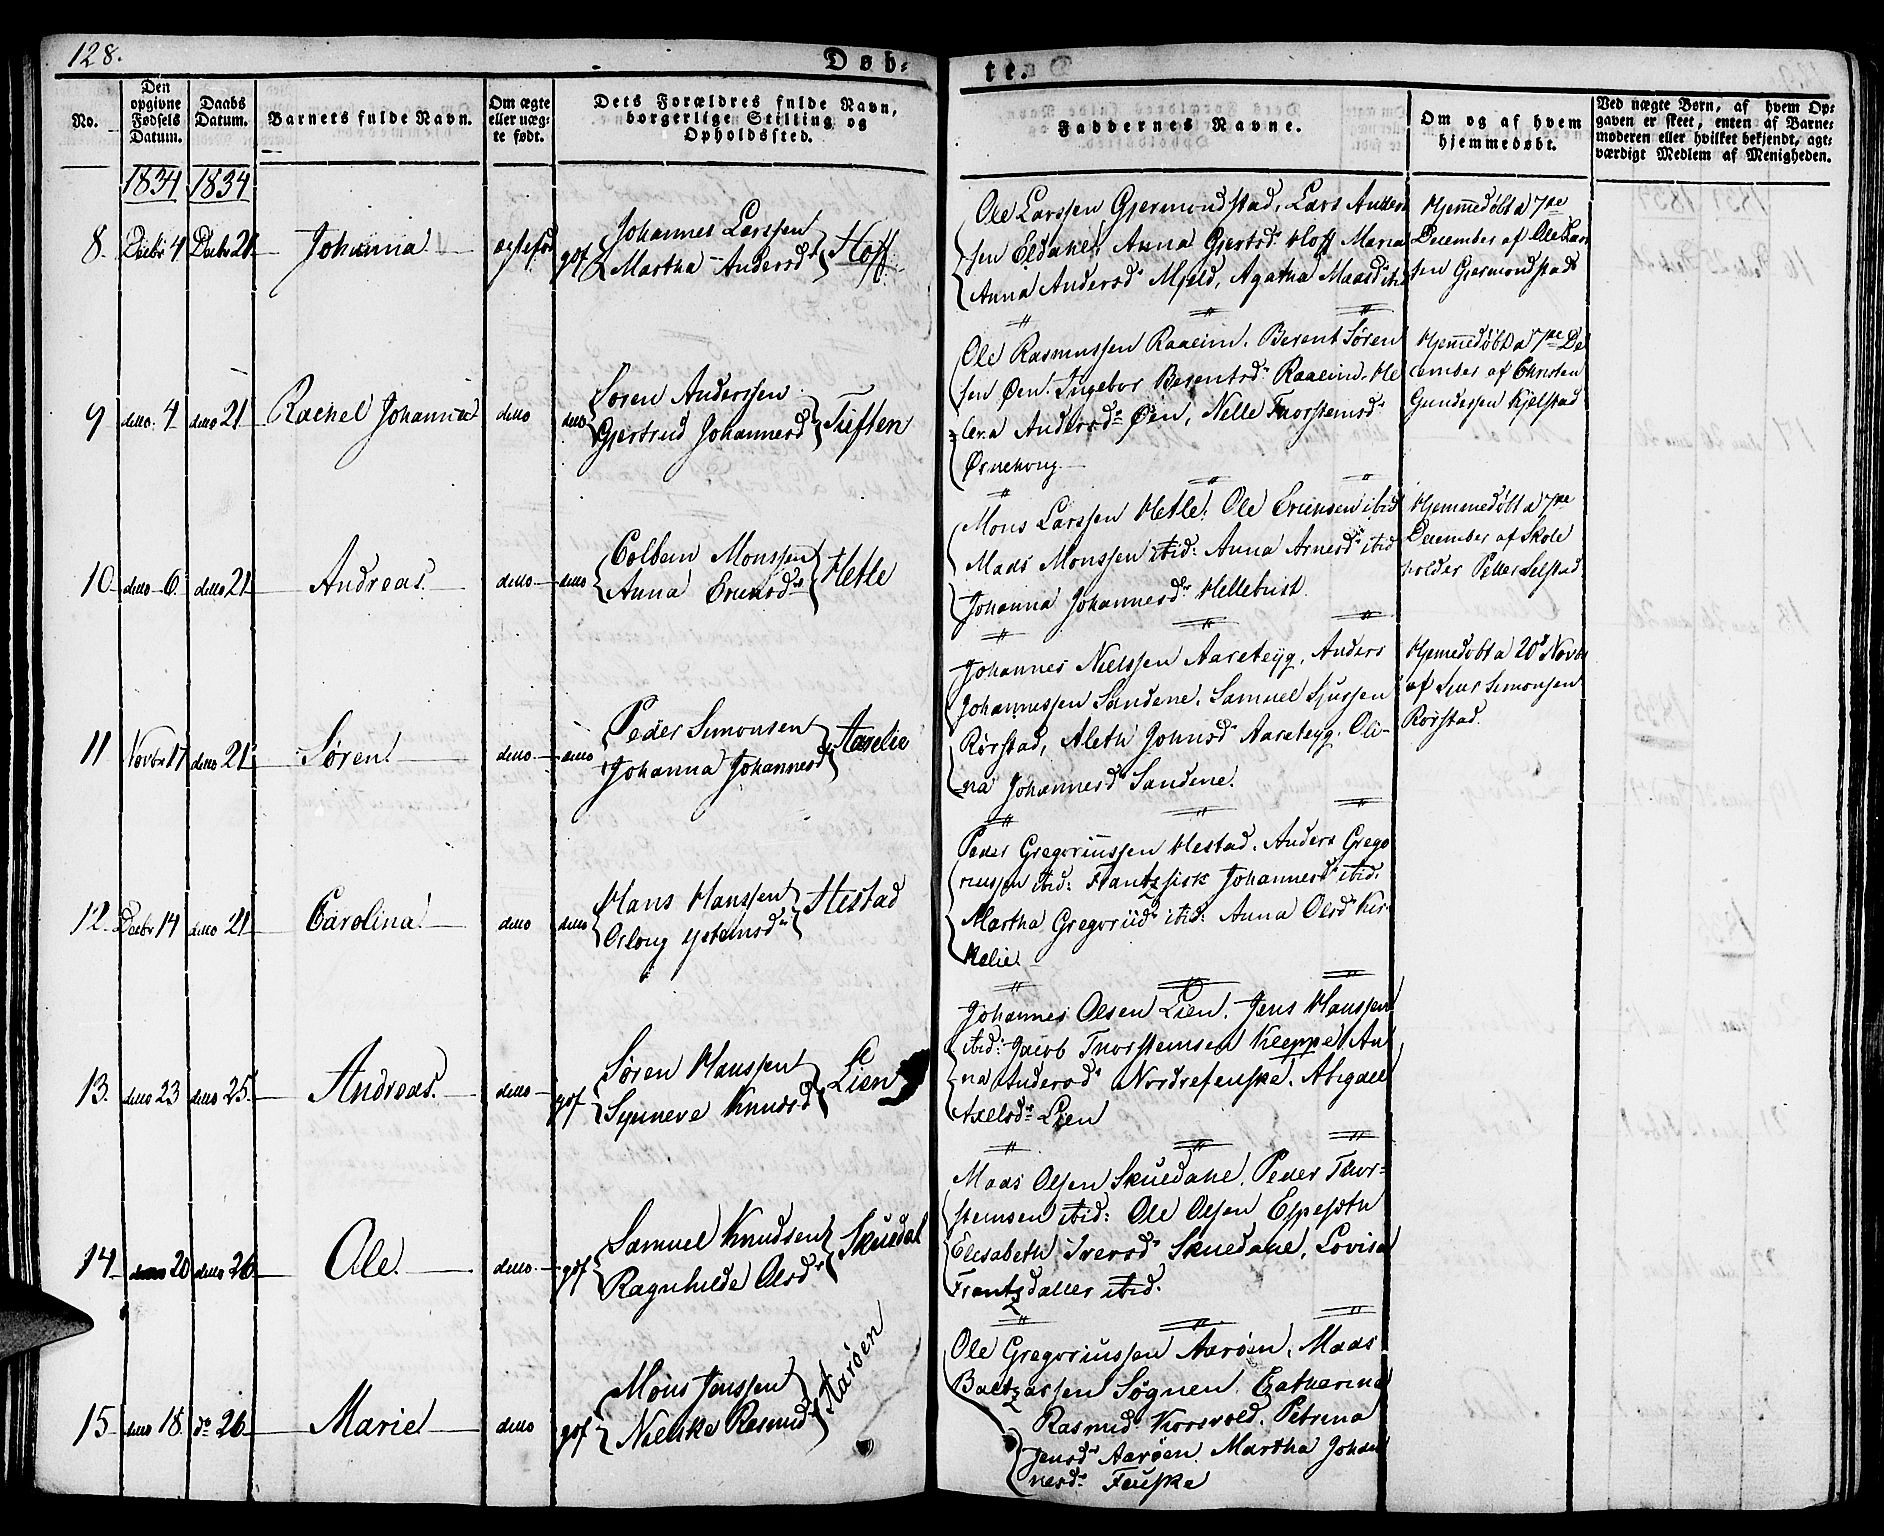 128.
Døb-
te.
No.
Den opgivne Fødsels Datum.
Daabs Datum.
Barnets fulde Navn.
Om ægte eller uægte født.
Dets Forældres fulde Navn, borgerlige Stilling og Opholdssted.
Faddernes Navne.
Om og af hvem hjemmedøbt.
Ved uægte Børn, af hvem Opgaven er skeet, enten af Barnemoderen eller hvilket bekjendt, agtværdigt Medlem af Menigheden.
1834 1834
8. Decbr 4 Decbr 21 Johanna ægtefød gof Johannes Larssen
Martha Andersdr Hoff
Ole Larssen Gjermondstad, Lars Anders
sen Eldaker, Anna Gjertsdr Hoff Maria
Anna Andersdr Mjeld, Agatha Maasdr ibid
Hjemmedøbt d 7de
December af Ole Lars
sen Gjermondstad
9 detto 4 detto 21 Rachel Johanna detto detto Søren Anderssen
Gjertrud Johannesdr Tuften
Ole Rasmussen Raaeim. Berent Søren
sen Øen. Ingebor Berentsdr Raaeim. He
lena Andersdr Øen, Nelle Thorstensdr
Ørnehoug
Hjemmedøbt d 7de De
cember af Christen
Gundersen Kjelstad
10 detto 6 detto 21 Andreas. detto detto Colbein Monssen
Anna Ericksdr Hetle
Mons Larssen Hetle. Ole Ericksen ibid
Mads Monssen ibid: Anna Arnesdr ibid
Johanna Johannesdr Hellebust.
Hjemmedøbt d 7de
December af Skole
holder Petter Selstad
11 Novbr 17 detto 21 Søren detto detto Peder Simonsen
Johanna Johannesdr Aarelie
Johannes Nielssen Aareteyg, Anders
Johannessen Sandene. Samuel Sjurssen
Rørstad, Aleth Johnsdr Aareteyg. Oli-
na Johannesdr Sandene.
Hjemmedøbt d 20d Novbr
af Siur Simonsen
Rørstad.
12. Decbr 14 detto 21 Carolina detto detto Hans Hanssen
Osloug Hestad
Peder Gregoriussen Hestad. Anders Grego
riussen ibid: Johannesdr ibid.
Martha Gregoriidr ibid: Anna Olsdr Kir-
kelie.
13. detto 23 detto 25. Andreas. detto gof Søren Hanssen
Synneve Knudsdr Lien
Johannes Olsen Lien. Jens Hanssen
ibid: Jacob Thorstensen Kleppe An
na Andersdr Nordrefenske. Abigael
Axelsdr Lien
14 detto 20 detto 26 Ole. detto gof Samuel Knudsen
Ragnhilde Olsdr Skuedal
Mads Olsen Skuedahl. Peder Thor-
stensen ibid: Ole Olsen Espeseth
Elisabeth Iversdr Skuedahl, Lovisa
Frantzdatter ibid.
15 detto 18. do 26 Marie detto gof Mons Jenssen
Nielske Rasmusdr Aarøen
Ole Gregoriussen Aarøen. Mads
Baltzarssen Søgnen. Catherina
Rasmusdr Korsvold. Petrina
Jensdr Aarøen. Martha Johan
nesdr Fenske